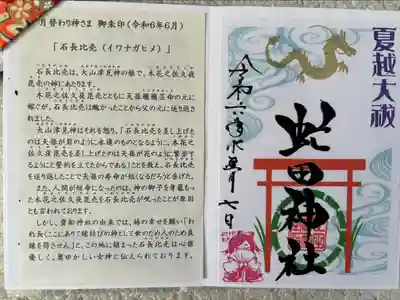 月替わり神さま 御朱印(令和6年6月)
「石長比売(イワナガヒメ)」
石長比売は、大山津見神の娘で、木花之佐久夜
毘売の姉にあたります。
木花之佐久夜毘売とともに天孫瓊瓊芸命の元に
嫁ぐが、石長比売は醜かったことから父の元に送り返さ
れました。
大山津見神はそれを怒り、「石長比売を差し上げた
のは天孫が岩のように永遠のものとなるように、木花之
佐久夜毘売を差し上げたのは天孫が花のように繁栄す
るようにと誓約を立てたからである」ことを教え、石長比売
を送り返したことで天孫の寿命が短くなるだろうと告げた。
また、人間が短命になったのは、神の御子を身籠もっ
た木花之佐久夜毘売を石長比売が呪ったことが
とも言われております。
しかし、貴船神社の由来では、妹の幸せを願い「わ
れ長くここにありて縁結びの神として世のため人のため良
縁を得させん」と、この地に鎮まった石長比売は心根
優しく、奥ゆかしい女神と伝えられております。
夏越大祓
令和六年水無月
七日
蛇田神社